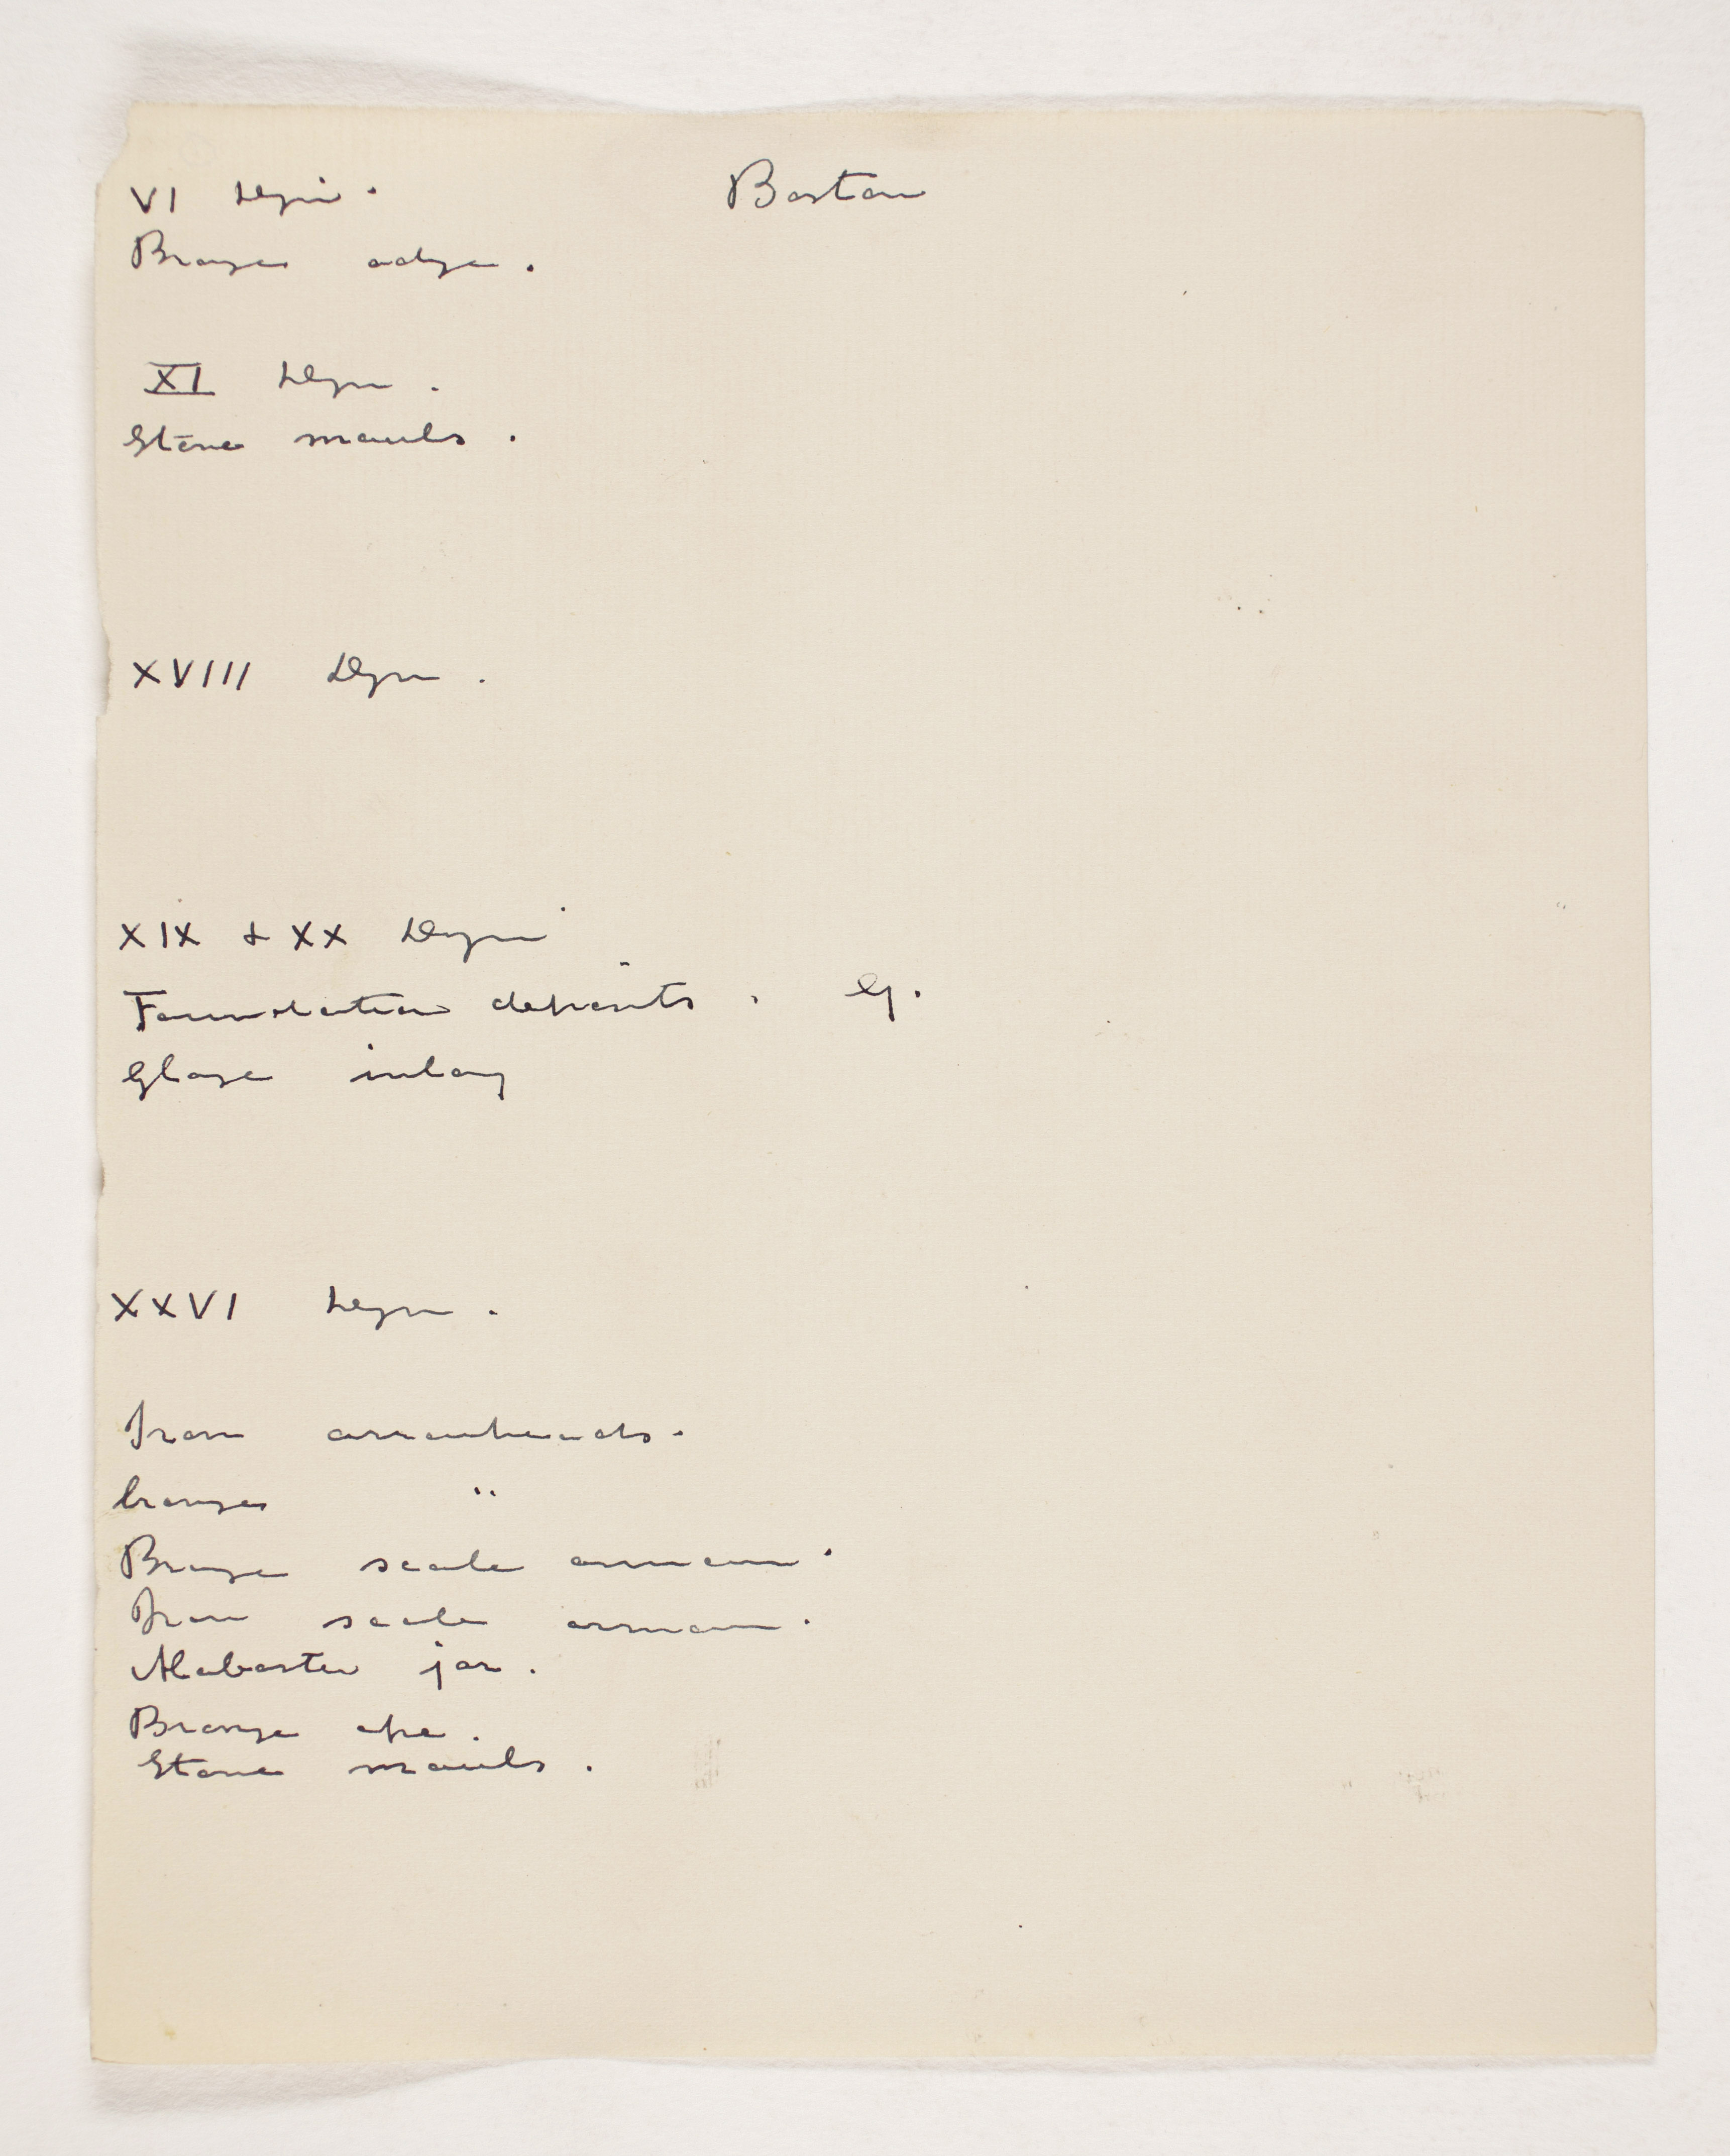 VI Dyn. Boston
Bronze adze.
XI Dyn.
Stone mauls.
XVIII Dyn.
XIX & XX Dyn
Foundation deposits. G.
Glaze inlay
XXVI Dyn.
Iron arrowheads.
bronze "
Bronze scale armour.
Iron scale armour.
Alabaster jar.
Bronze ape.
Stone mauls.